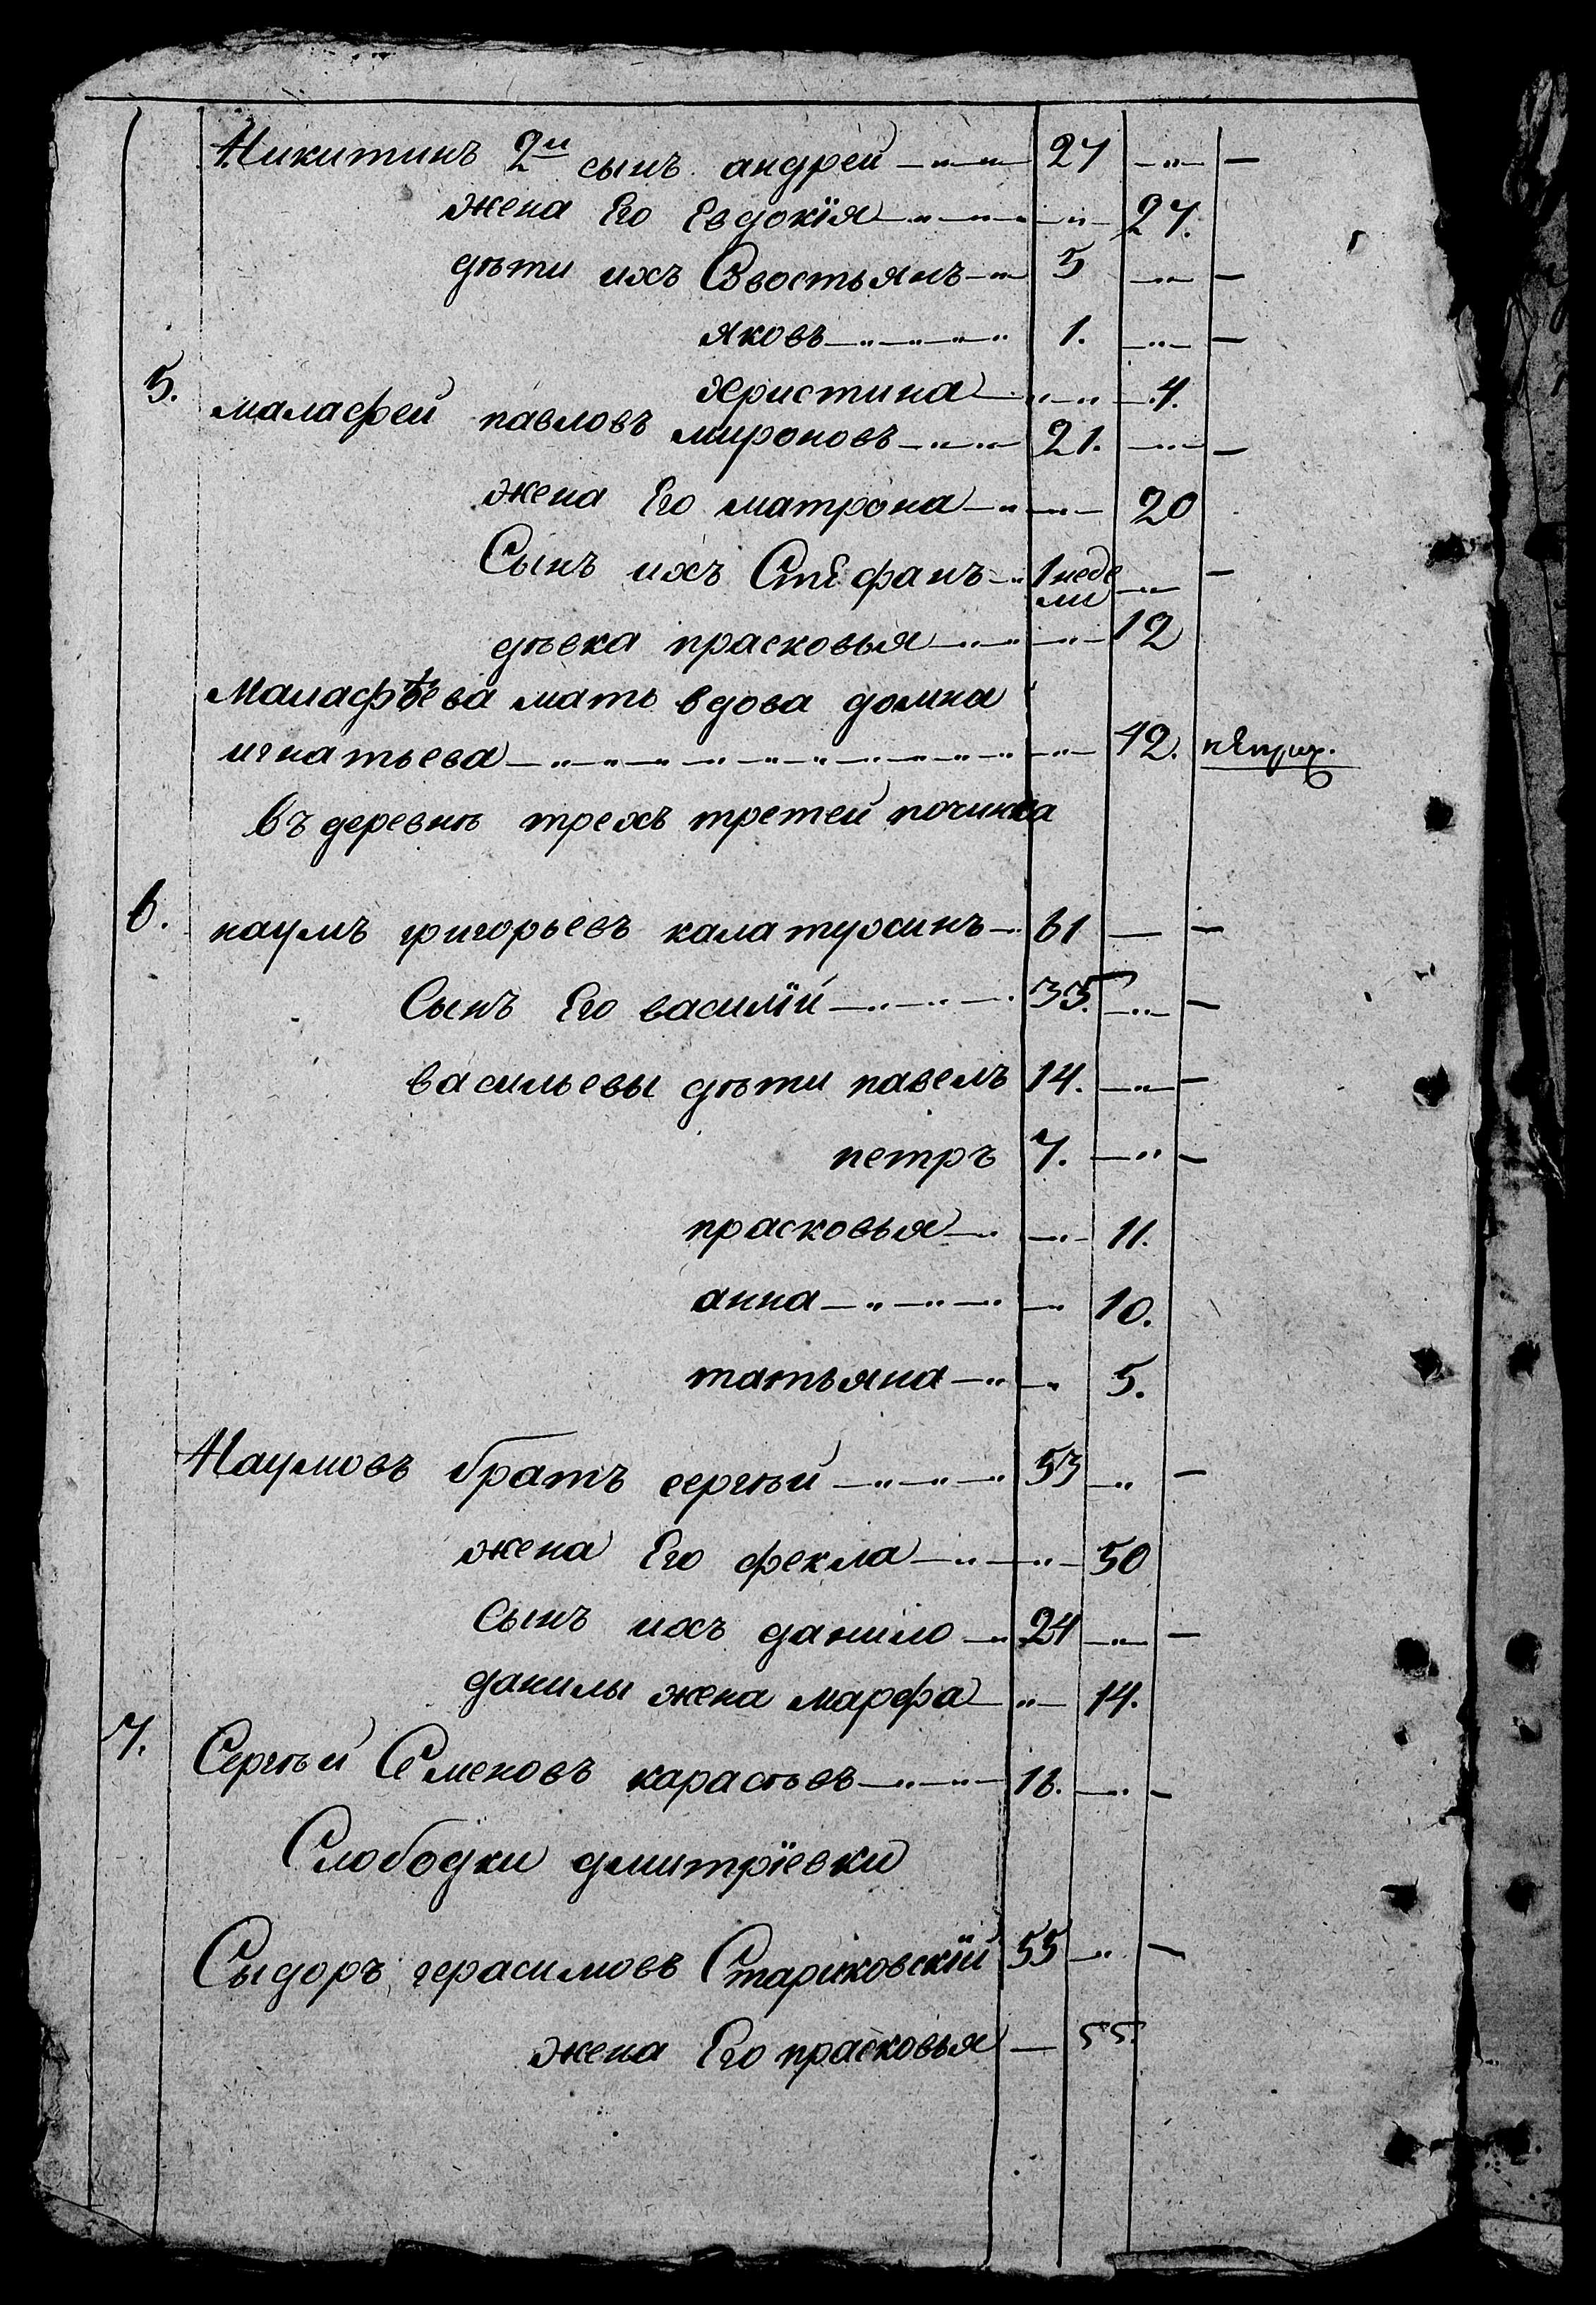 Никитинъ 2й сынъ андрей 27
жена Его Евдокія 27.
дѣти ихъ Савостьянъ 5
яковъ 1.
христина 4.
5. малафей павловъ мироновъ 21.
жена Его матрона 20
Сынъ ихъ Стефанъ 1 неде
ли
дѣвка прасковья 12
Малафѣева мать вдова домна
игнатьева 42.
въ деревнѣ трехъ третей починка
6. наумъ григорьевъ калатухинъ 61
Сынъ Его василій 35.
васильевы дѣти павелъ 14.
петръ 7.
прасковья 11.
анна 10.
татьяна 5.
Наумовъ братъ сергѣй 53
жена Его фекла 50
Сынъ ихъ данило 24
данилы жена марфа 14.
7. Сергѣй Семеновъ карасѣвъ 16.
Слободки дмитріевки
Сыдоръ герасимовъ Стариковскій 55
жена Его прасковья 55.